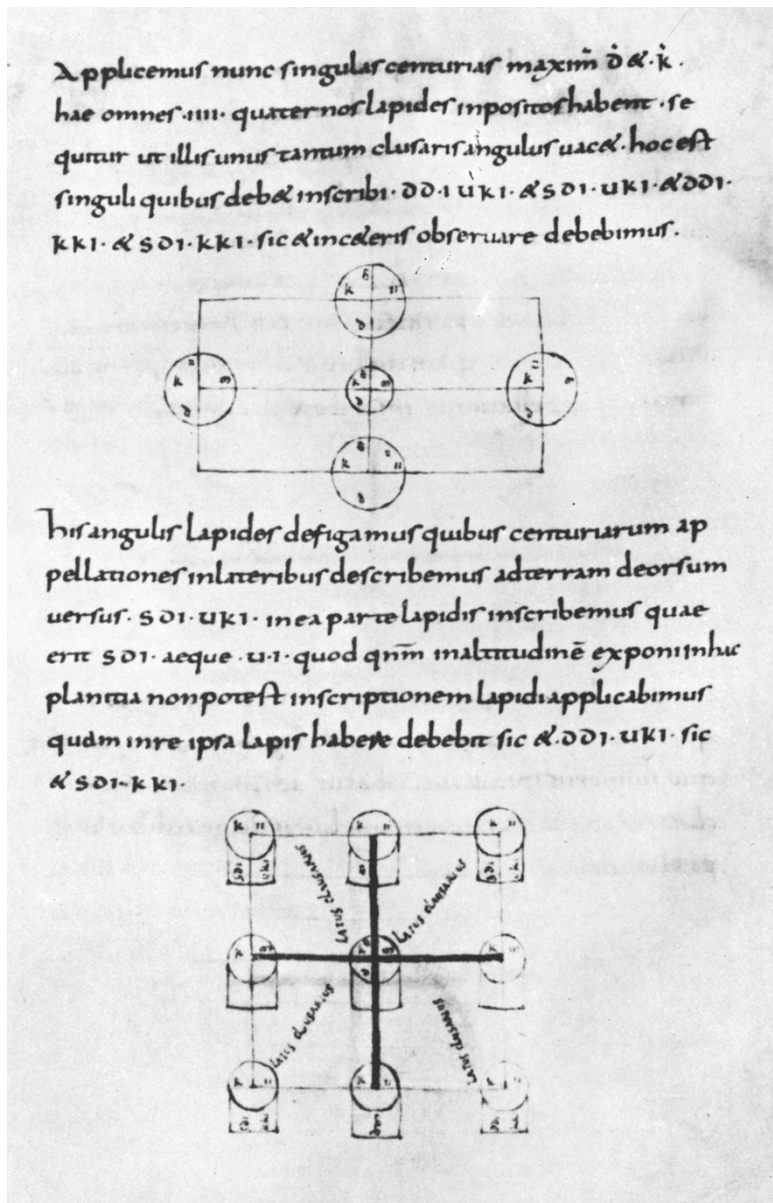 Applicemus nunc singulas centurias maxim̄ ḋ & k̇ .
hae omnes ·IIII· quaternos lapides inpositos habent · se
quitur ut illis unus tantum clusaris angulus uac& · hoc est
singuli quibus deb& inscribi · DD·I UKI · & SDI · UKI · & DDI ·
KKI · & SDI · KKI · sic & inc&eris obseruare debebimus .
k
k
k
k
k
his angulis lapides defigamus quibus centuriarum ap
pellationes inlateribus describemus adterram deorsum
uersus · SDI · UKI · inea parte lapidis inscribemus quae
erit SDI · aeque · U·I · quod qnm̄ inaltitudinē exponi inhac
planitia nonpotest inscriptionem lapidi applicabimus
quam inre ipsa lapis habere debebit sic & · DDI · UKI · sic
& SDI · KKI ·
k u k u k u
latus clusarius latus clusarius
latus clusarius latus clusarius
k u k u